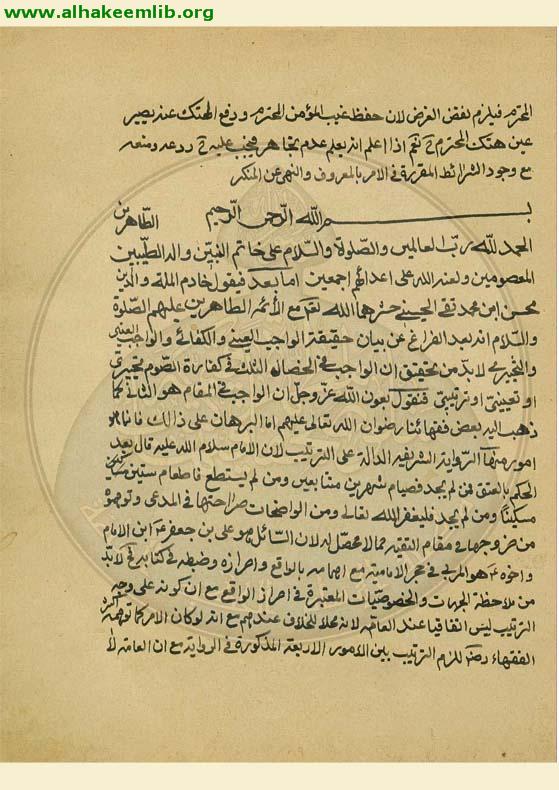 www.alhakeemlib.org
المحترم فيلزم نقض الغرض لان حفظ غيب المؤمن المحترم ودفع الهتك عند بصير
عين هتك المحترم نعم اذا اعلم انه يعلم عدم تجاهر فيجب عليه ردعه ومنعه
مع وجود الشرائط المقررة في الامر بالمعروف والنهي عن المنكر
بسم الله الرحمن الرحيم
الحمد لله رب العالمين والصلوة والسلام على خاتم النبيين واله الطيبين الطاهرين
المعصومين ولعنة الله على اعدائهم اجمعين اما بعد فيقول خادم الملة والدين
محسن ابن محمد تقي الحسيني حشرهما الله تعالى مع الأئمة الطاهرين عليهم الصلوة
والسلام انه بعد الفراغ عن بيان حقيقة الواجب العيني والكفائي والواجب التعييني
والتخيري لابد من تحقيق ان الواجب في الخصال الثلث في كفارة الصوم تخيري
او تعييني او ترتيبي فنقول بعون الله عز وجل ان الواجب في المقام هو الثاني كما
ذهب اليه بعض فقهائنا رضوان الله تعالى عليهم اما البرهان على ذالك فانا هو
امور منها الرواية الشريفة الدالة على الترتيب لان الامام سلام الله عليه قال بعد
الحكم بالعتق فمن لم يجد فصيام شهرين متتابعين ومن لم يستطع فاطعام ستين
مسكينا ومن لم يجد فليستغفر الله تعالى ومن الواضحات صراحتها في المدعى وتوهم
من خروجها في مقام التقية مما لا محصل له لان السائل هو علي بن جعفر ابن الامام
واخوه هو المربي في حجر الامامة مع اهتمامه بالواقع واحرازه وضبطه في كتابه فلابد
من ملاحظة الجهات والخصوصيات المعتبرة في احراز الواقع مع ان كونه على وجه
الترتيب ليس اتفاقيا عند العامة لانه محلا للخلاف عندهم مع انه لو كان الامر كما توهمه
الفقهاء للزم الترتيب بين الامور الاربعة المذكورة في الرواية مع ان العامة لا